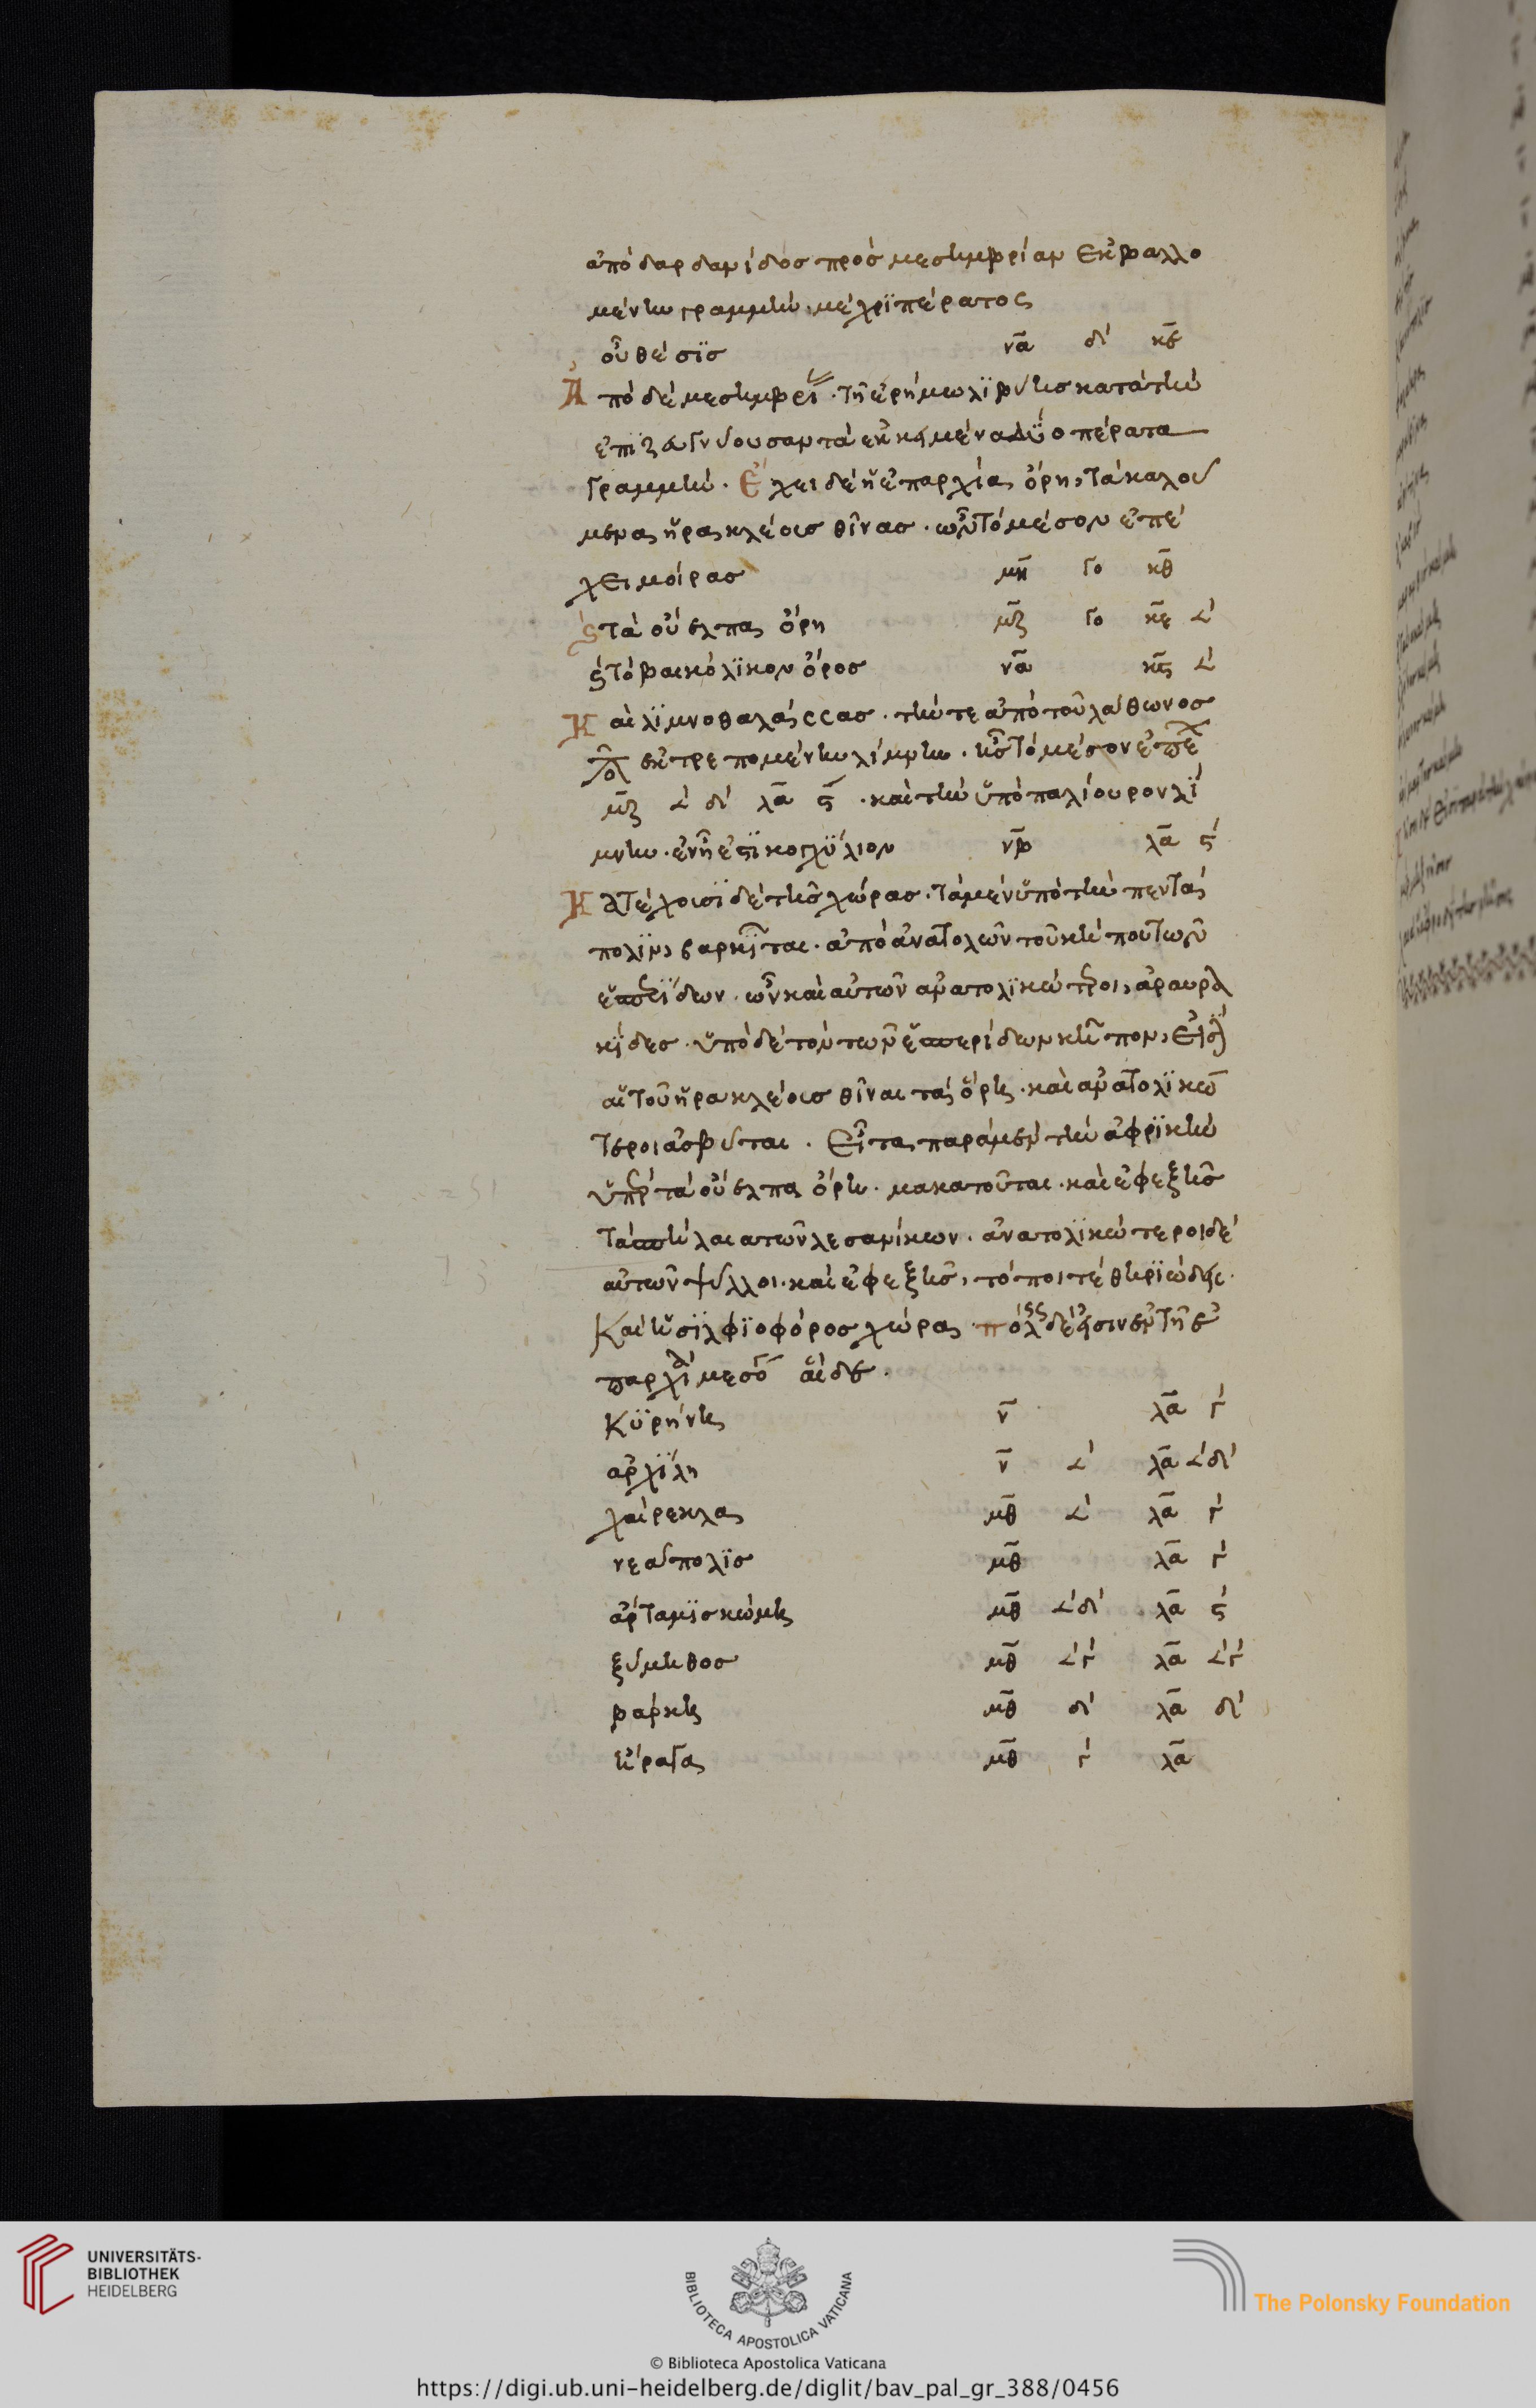 ἀπὸ δαρδανίδος πρὸς μεσημβρίαν ἐκβαλλο
μένην γραμμὴν μέχρι πέρατος
οὗ θέσις να̅ δ' κε̅
Ἀπὸ δὲ μεσημβρι · τῇ ἐρήμω λιβύης κατὰ τὴν
ἐπιζευγνύουσαν τὰ ἐκκείμενα δύο πέρατα
γραμμήν. Ἔχει δὲ ἡ ἐπαρχία ὄρη, τὰ καλού
μενα ἡρακλέους θῖνας · ὧν τὸ μέσον ἐπέ
χει μοίρας μη̅ γο κθ̅
ϗ τὰ οὐέλπα ὄρη μζ̅ γο κε̅ 𐅵'
ϗ τὸ βαικόλικον ὄρος να̅ κϛ̅ 𐅵'
Καὶ λιμνοθαλάσσας · τήν τε ἀπὸ τοῦ λάθωνος
ἐκτρεπομένην λίμνην · ἧς τὸ μέσον ἐπε
μζ̅ 𐅵' δ' λα̅ ϛ' · καὶ τὴν ὑπὸ παλίουρον λί
μνην · ἐν ᾗ ἐστι κογχύλιον νβ̅ λα̅ ϛ'
Κατέχουσι δὲ τῆς χώρας · τὰ μὲν ὑπὸ τὴν πεντά
πολιν, βαρκῖται · ἀπὸ ἀνατολῶν τοῦ κήπου τῶν
ἑσπερίδων · ὧν καὶ αὐτῶν ἀνατολικώτεροι, ἀραυρα
κίδες · ὑπὸ δὲ τοὺ τῶν ἑσπερίδων κῆπον, εἰσι
αἱ τοῦ ἡρακλέους θῖναι τὰ ὄρη · καὶ ἀνατολικώ
τεροι ἀσβύται · Εἶτα παρὰ μὲν τὴν ἀφρικὴν
ὑπὲρ τὰ οὐέλπα ὄρη · μακατοῦται · καὶ ἐφεξῆς
τὰ σπήλαια τῶν λεσανίκων · ἀνατολικώτεροι δὲ
αὐτῶν ψύλλοι · καὶ ἐφεξῆς, τόποι τε θηριώδεις ·
Καὶ ἡ σιλφιοφόρος χώρα · πόλεις δέ εἰσιν ἐν τῇ ἐ
παρχί μεσό αἵδε ·
Κυρήνη ν̅ λα̅ γ'
ἀρχίλη ν̅ 𐅵' λα̅ 𐅵' δ'
χαίρεκλα μθ̅ 𐅵' λα̅ γ'
νεάπολις μθ̅ λα̅ γ'
ἀρταμις κώμη μθ̅ 𐅵' δ' λα̅ ϛ'
ξύμηθος μθ̅ 𐅵' γ' λα̅ 𐅵' γ'
βάρκη μθ̅ δ' λα̅ δ'
ἤραγα μθ̅ γ' λα̅
UNIVERSITÄTS-
BIBLIOTHEK
HEIDELBERG
BIBLIOTECA APOSTOLICA VATICANA
The Polonsky Foundation
© Biblioteca Apostolica Vaticana
https://digi.ub.uni-heidelberg.de/diglit/bav_pal_gr_388/0456